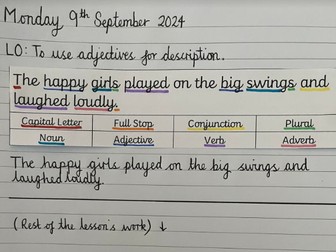 Monday 9th September 2024
LO: To use adjectives for description.
The happy girls played on the big swings and
laughed loudly.
Capital Letter Full Stop Conjunction Plural
Noun Adjective Verb Adverb
The happy girls played on the big swings and
laughed loudly.
(Rest of the lesson's work) ↓